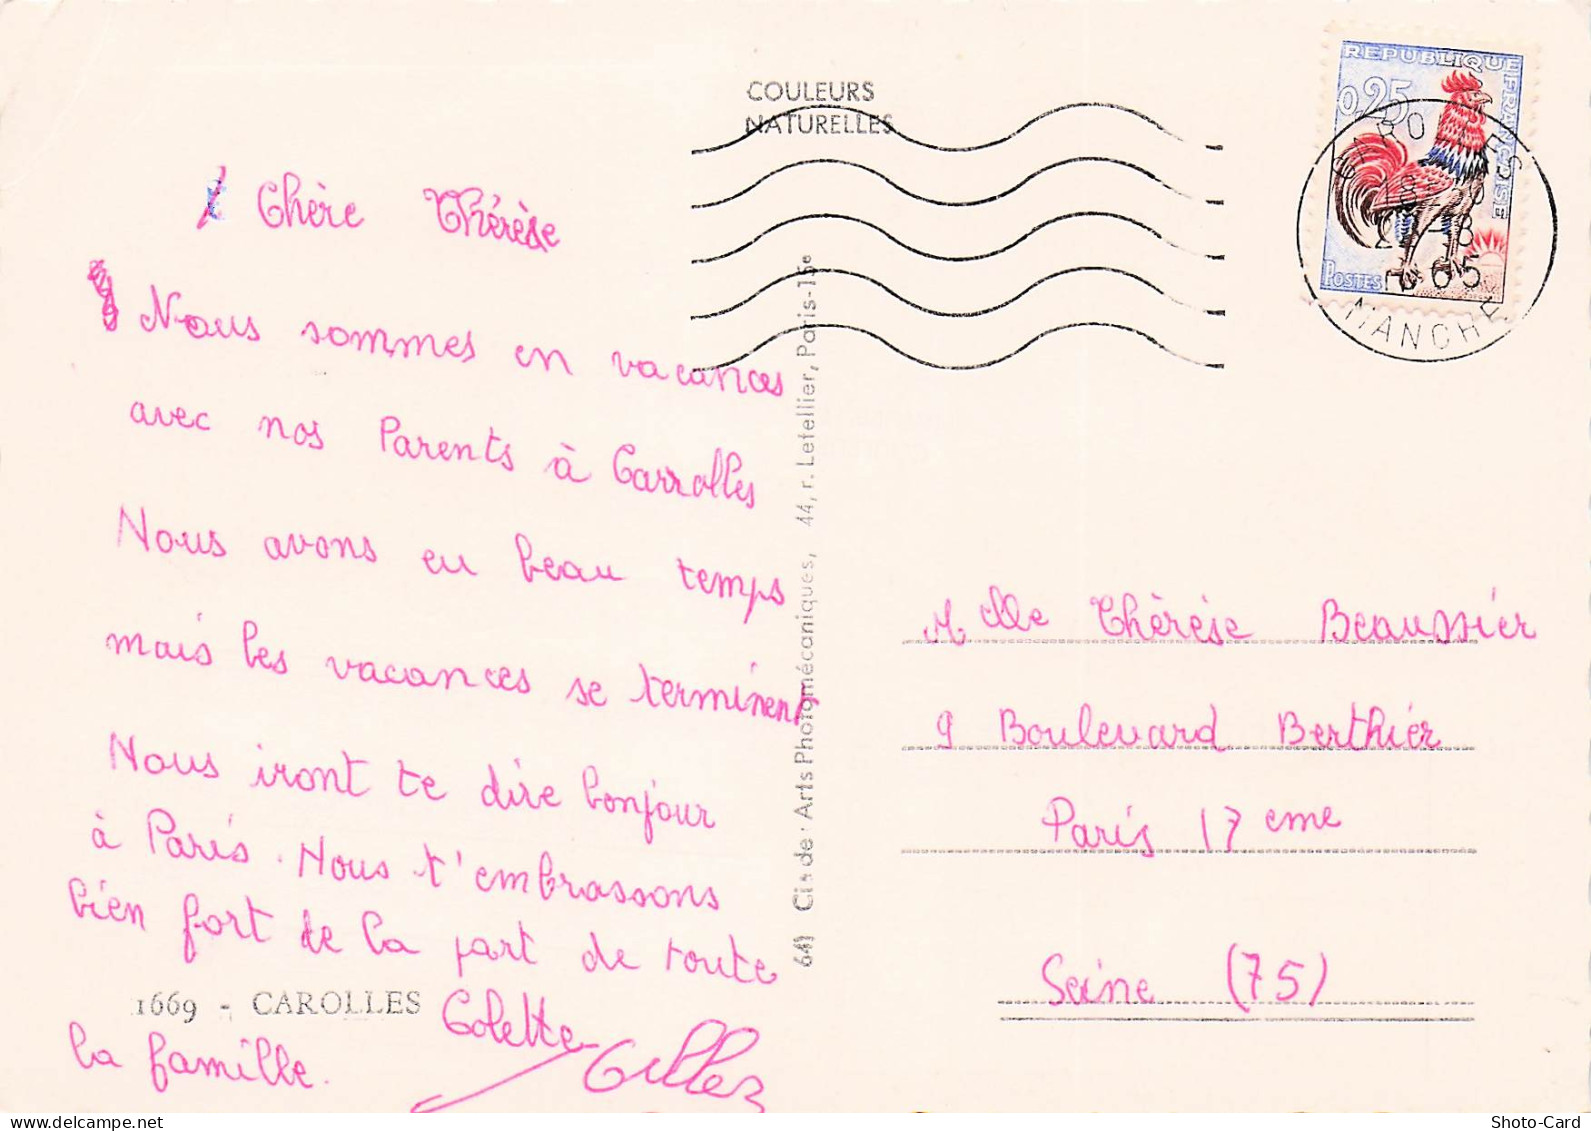 COULEURS
NATURELLES
REPUBLIQUE FRANÇAISE
0,25
POSTES
CAROLLES
65
MANCHE
Chère Thérèse
Nous sommes en vacances
avec nos Parents à Carrolles
Nous avons eu beau temps
mais les vacances se terminent
Nous iront te dire bonjour
à Paris. Nous t'embrassons
bien fort de la part de toute
la famille.
Colette Gilles
1669 - CAROLLES
Cim de : Arts Photomécaniques, 44, r. Letellier, Paris-15e
M elle Thérèse Beaussier
9 Boulevard Berthier
Paris 17 eme
Seine (75)
Shoto-Card